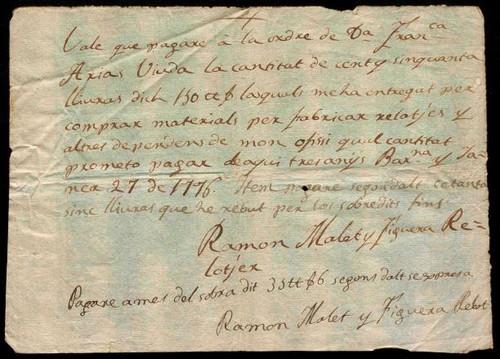 Vale que pagare â la ordre de Da Fran.ca
Arias Viuda la cantitat de cent y sinquanta
lliuras dich 150 ## laquals meha entregat per
comprar materials per fabricar relotjes y
altres depensens de mon offisi qual cantitat
prometo pagar de aqui tres anys Barna y Ja=
ner 27 de 1776. Item pagare segons dalt
sinc lliuras que he rebut per los sobredits fins.
Ramon Malet y Figuera Re=
lotjer
Pagare ames del sobra dit 35 ## 6 segons dalt se expresa
Ramon Malet y Figuera Rebot